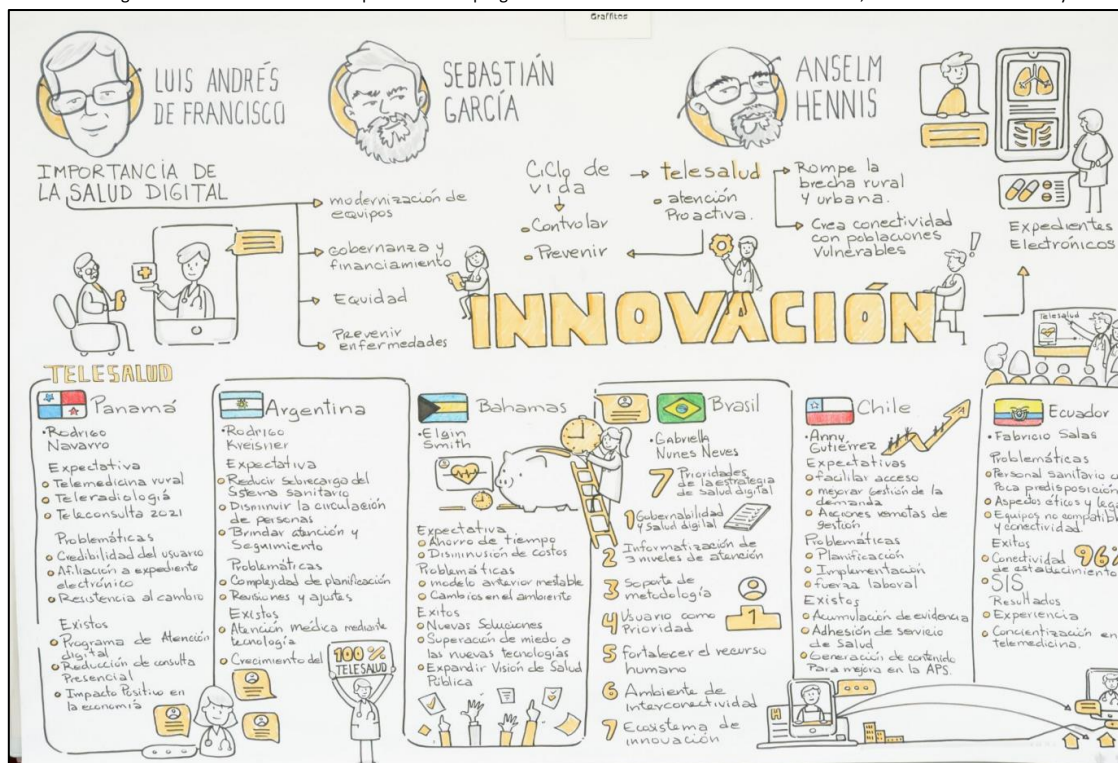 Graffitos
LUIS ANDRÉS
DE FRANCISCO
SEBASTIÁN
GARCÍA
ANSELM
HENNIS
IMPORTANCIA DE
LA SALUD DIGITAL
modernización de
equipos
gobernanza y
financiamiento
Equidad
Prevenir
enfermedades
Ciclo de
vida
Controlar
Prevenir
telesalud
atención
Proactiva.
Rompe la
brecha rural
y urbana.
Crea conectividad
con poblaciones
Vulnerables
Expedientes
Electrónicos
INNOVACIÓN
!
Telesalud
TELESALUD
Panamá
Rodrigo
Navarro
Expectativa
Telemedicina rural
Teleradiología
Teleconsulta 2021
Problemáticas
Credibilidad del usuario
Afiliación a expediente
electrónico
Resistencia al cambio
Existos
Programa de Atención
digital
Reducción de consulta
Presencial
Impacto Positivo en
la economía
Argentina
Rodrigo
Kreisner
Expectativa
Reducir sobrecargo del
Sistema sanitario
Disminuir la circulación
de personas
Brindar atención y
Seguimiento
Problemáticas
Complejidad de planificación
Revisiones y ajustes
Existos
Atención médica mediante
tecnología
Crecimiento del
100%
TELESALUD
Bahamas
Elgin
Smith
Expectativa
Ahorro de tiempo
Disminusión de costos
Problemáticas
modelo anterior inestable
Cambios en el ambiente
Exitos
Nuevas Soluciones
Superación de miedo a
las nuevas tecnologías
Expandir Visión de Salud
Pública
Brasil
Gabriella
Nunes Neves
7 Prioridades
de la estrategia
de Salud digital
1 Gobernabilidad
y Salud digital
2 Informatización de
3 niveles de atención
3 Soporte de
metodología
4 Usuario como
Prioridad
1
5 fortalecer el recurso
humano
6 Ambiente de
interconectividad
7 Ecosistema de
innovación
Chile
Anny
Gutiérrez
Expectativas
facilitar acceso
mejorar gestión de la
demanda
Acciones remotas de
gestión
Problemáticas
Planificación
Implementación
fuerza laboral
Existos
Acumulación de evidencia
Adhesión de servicio
de Salud
Generación de contenido
Para mejora en la APS.
H
Ecuador
Fabricio Salas
Problemáticas
Personal Sanitario
Poca predisposición
Aspectos éticos y
Equipos no
y conectividad.
Exitos
Conectividad 96%
de establecimiento
SIS
Resultados
Experiencia
Concientización en
telemedicina.